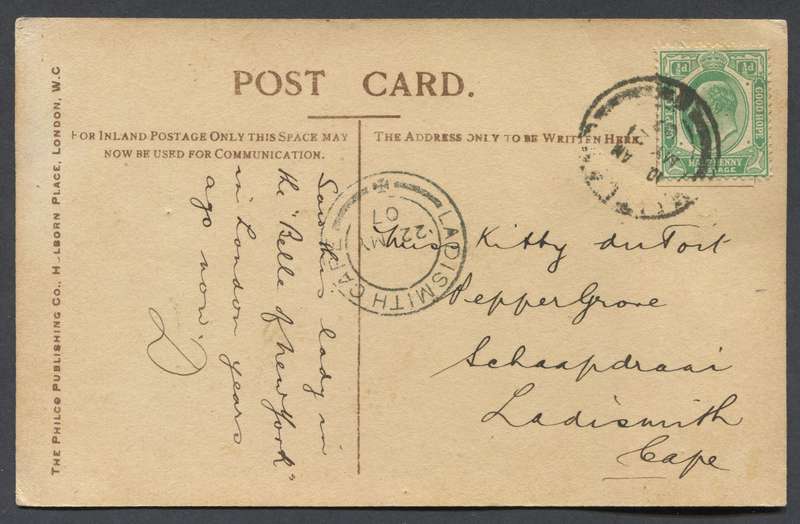 POST CARD.
FOR INLAND POSTAGE ONLY THIS SPACE MAY
NOW BE USED FOR COMMUNICATION.
THE ADDRESS ONLY TO BE WRITTEN HERE.
THE PHILCO PUBLISHING CO., HOLBORN PLACE, LONDON, W.C
Saw this lady in
the "Belle of New York"
in London years
ago now.
D
Miss Kitty du Toit
Pepper Grove
Schaapdraai
Ladismith
Cape
LADISMITH CAPE
22 MY
07
½d
½d
GOOD HOPE
HALFPENNY
POSTAGE
10 AM